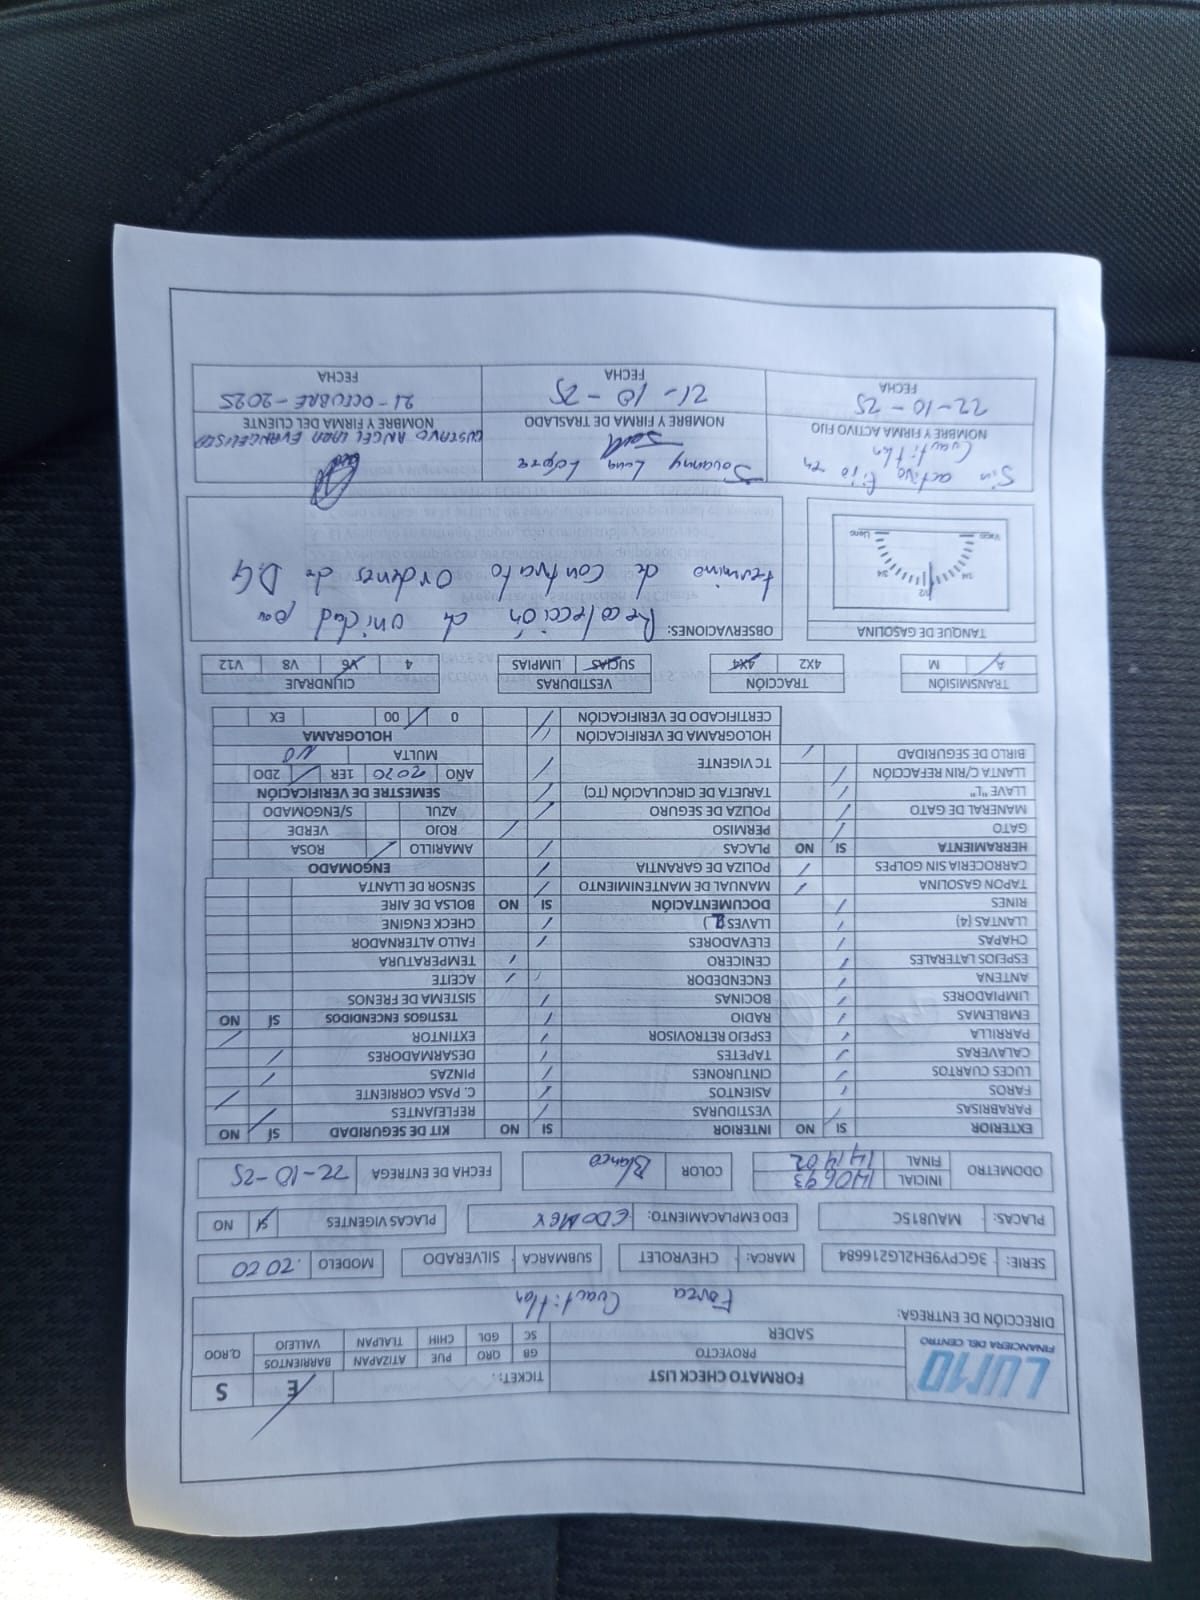 LUMO
FINANCIERA DEL CENTRO
FORMATO CHECK LIST TICKET: E S
PROYECTO GB QRO PUE ATIZAPAN BARRIENTOS Q.ROO
SADER SC GDL CHIH TLALPAN VALLEJO
DIRECCIÓN DE ENTREGA: Forza Cuautitlan
SERIE: 3GCPY9EH2LG216684 MARCA: CHEVROLET SUBMARCA SILVERADO MODELO 2020
PLACAS: MAU815C EDO EMPLACAMIENTO: EDOMEX PLACAS VIGENTES SI NO
ODOMETRO INICIAL 140693 COLOR Blanco FECHA DE ENTREGA 22-10-25
FINAL 141402
EXTERIOR SI NO INTERIOR SI NO KIT DE SEGURIDAD SÍ NO
PARABRISAS ✓ VESTIDURAS ✓ REFLEJANTES ✓
FAROS ✓ ASIENTOS ✓ C. PASA CORRIENTE ✓
LUCES CUARTOS ✓ CINTURONES ✓ PINZAS ✓
CALAVERAS ✓ TAPETES ✓ DESARMADORES ✓
PARRILLA ✓ ESPEJO RETROVISOR ✓ EXTINTOR ✓
EMBLEMAS ✓ RADIO ✓ TESTIGOS ENCENDIDOS SÍ NO
LIMPIADORES ✓ BOCINAS ✓ SISTEMA DE FRENOS
ANTENA ✓ ENCENDEDOR ✓ ACEITE
ESPEJOS LATERALES ✓ CENICERO ✓ TEMPERATURA
CHAPAS ✓ ELEVADORES ✓ FALLO ALTERNADOR
LLANTAS (4) ✓ LLAVES ( ) ✓ CHECK ENGINE
RINES ✓ DOCUMENTACIÓN SI NO BOLSA DE AIRE
TAPON GASOLINA ✓ MANUAL DE MANTENIMIENTO ✓ SENSOR DE LLANTA
CARROCERIA SIN GOLPES ✓ POLIZA DE GARANTIA ✓ ENGOMADO
HERRAMIENTA SI NO PLACAS ✓ AMARILLO ✓ ROSA
GATO ✓ PERMISO ✓ ROJO VERDE
MANERAL DE GATO ✓ POLIZA DE SEGURO ✓ AZUL S/ENGOMADO
LLAVE "L" ✓ TARJETA DE CIRCULACIÓN (TC) ✓ SEMESTRE DE VERIFICACIÓN
LLANTA C/RIN REFACCIÓN ✓ TC VIGENTE ✓ AÑO 2020 1ER ✓ 2DO
BIRLO DE SEGURIDAD ✓ MULTA NO
HOLOGRAMA DE VERIFICACIÓN ✓ HOLOGRAMA
CERTIFICADO DE VERIFICACIÓN ✓ 0 ✓ 00 EX
TRANSMISIÓN TRACCIÓN VESTIDURAS CILINDRAJE
A M 4X2 4X4 SUCIAS LIMPIAS 4 V6 V8 V12
TANQUE DE GASOLINA
1/4 1/2 3/4
Vacio Lleno
OBSERVACIONES: Recolección de unidad por
termino de contrato Ordenes de D.G
Sin activo fijo en
Cuautitlan
NOMBRE Y FIRMA ACTIVO FIJO
22-10-25
FECHA
Jovanny Luna López
NOMBRE Y FIRMA DE TRASLADO
21-10-25
FECHA
GUSTAVO ANGEL LARA EVANGELISTA
NOMBRE Y FIRMA DEL CLIENTE
21-OCTUBRE-2025
FECHA